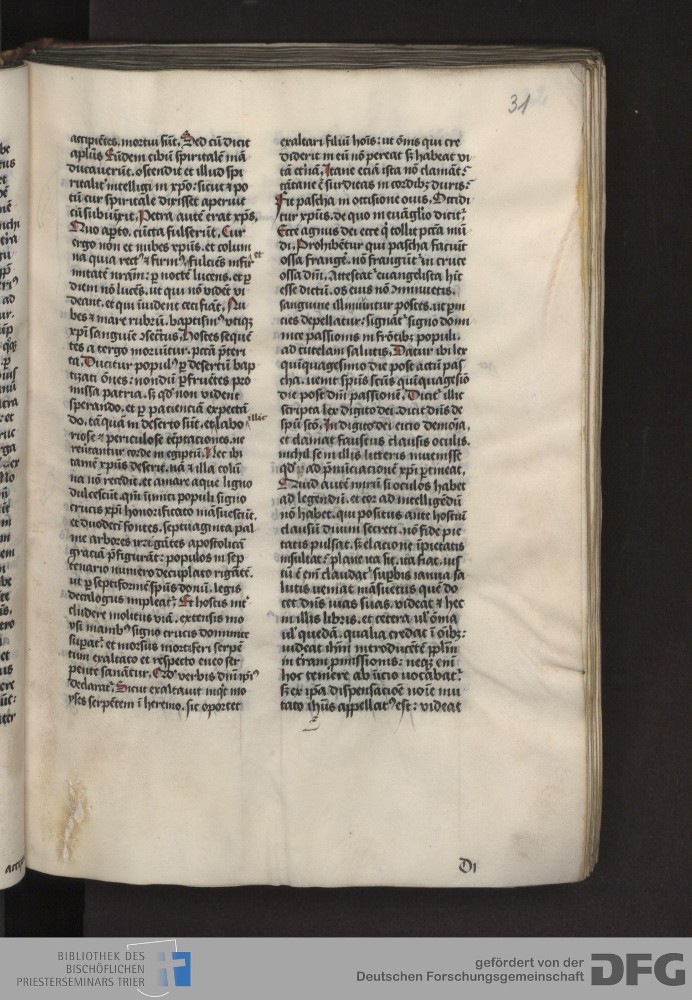 31
accipiētes. mortui sūt. Sed cū dicit
aplūs Eūdem cibū spiritalē mā
ducaverūt. ostendit et illud spi
ritalit' intelligi in xpō: sicut ⁊ po
tū cur spiritale dixisset aperuit
cū subiūxit. Petra autē erat xpūs.
Quo apto. cūcta fulserūt. Cur
ergo non et nubes xpūs. et colum
na quia rectꝰ ⁊ firmꝰ ⁊ fulciēs infir
et
mitatē nrām: p noctē lucens. et p
diem nō lucēs. ut qui nō vidēt vi
deant. et qui vident ceci fiāt. Nu
bes ⁊ mare rubrū. baptismꝰ utiqꝫ
xpī sanguīe 9secrtꝰ. Hostes sequē
tes a tergo moriūtur. pctā p̄teri
ta. Ducitur populꝰ p desertū. bap
tizati ōnes: nondū p̄fruētes pro
missa patria. sꝫ qđ non vident
sperando. et p patienciā expectā
do. tāquā in deserto sūt. et labo
illic
riose ⁊ periculose tēptationes. ne
revertantur corde in egiptū. Nec ibi
tamē xpūs deserit. nā ⁊ illa colū
na nō recedit. et amare aque ligno
dulcescūt. qm̄ inimici populi signo
crucis xpī honorificato māsuescūt.
et duodeci fontes. septuaginta pal
me arbores irrigātes apostolicā
graciā p̄figurāt: populos in sep
tenario numero decuplato rigātē.
ut p septiformē spūs donū. legis
decalogus impleatꝰ. Et hostis int'
cludere molitus viā. extensis mo
ysi manibꝰ signo crucis dominice
supatꝰ. et morsus mortiferi serpē
tium exaltato et respecto eneo ser
pente sanātur. Qđ verbis dnī ipīꝰ
declaratꝰ. Sicut exaltavit inqt mo
yses serpētem ī heremo. sic oportet
exaltari filiū hoīs: ut ōnis qui cre
diderit in eū nō pereat sꝫ habeat vi
tā etnā. Itane eciā ista nō clamāt?
tātane ē surditas in cordibꝫ duris?
Fit pascha in occisione ovis. Occidi
tur xpūs. de quo in evāglio dicitꝰ.
Ecce agnus dei ecce q̄ tollit pctā mū
di. Prohibētur qui pascha faciūt
ossa frangē. nō frangūtꝰ in cruce
ossa dnī. Attestatꝰ evangelista hīc
esse dictū. os eius nō 9minuetis.
sanguine illiniūntur postes. ut pni
cies depellatur: signātꝰ signo domi
nice passionis in frōtibꝫ populi.
ad tutelam salutis. Datur ibi lex
quīquagesimo die post actū pas
cha. venit spūs scūs quīquagesīo
die post dnī passionē. Dicitꝰ illic
scripta lex digito dei. dicit dnūs de
spū scō. In digito dei eicio demoīa,
et clamat faustus clausis oculis.
nichil se in illis litteris invenisse
qđ ad p̄nūciacionē xpī ptineat.
Quid autē mirū si oculos habet
ad legendū. et cor ad intelligēdū
nō habet. qui positus ante hostiū
clausū divini secreti. nō fide pie
tatis pulsat. sꝫ elacione īpietatis
insultat? plane ita sit. ita fiat. ius
tū ē enī. claudatꝰ supbis ianua sa
lutis veniat māsuetus quē do
cet dnūs vias suas. videat ⁊ hec
in illis libris. et cetera ul' ōmia
ul' quedā. qualia credat ī oībꝫ:
videat ihm̄ introducētē pplm̄
in trām pmissionis: neqꝫ enī
hoc temere ab īicio vocabatꝰ.
sꝫ ex ipā dispensatiōe noīe mu
tato ihūs appellatꝰ est: videat
Di
BIBLIOTHEK DES
BISCHÖFLICHEN
PRIESTERSEMINARS TRIER
gefördert von der
Deutschen Forschungsgemeinschaft
DFG